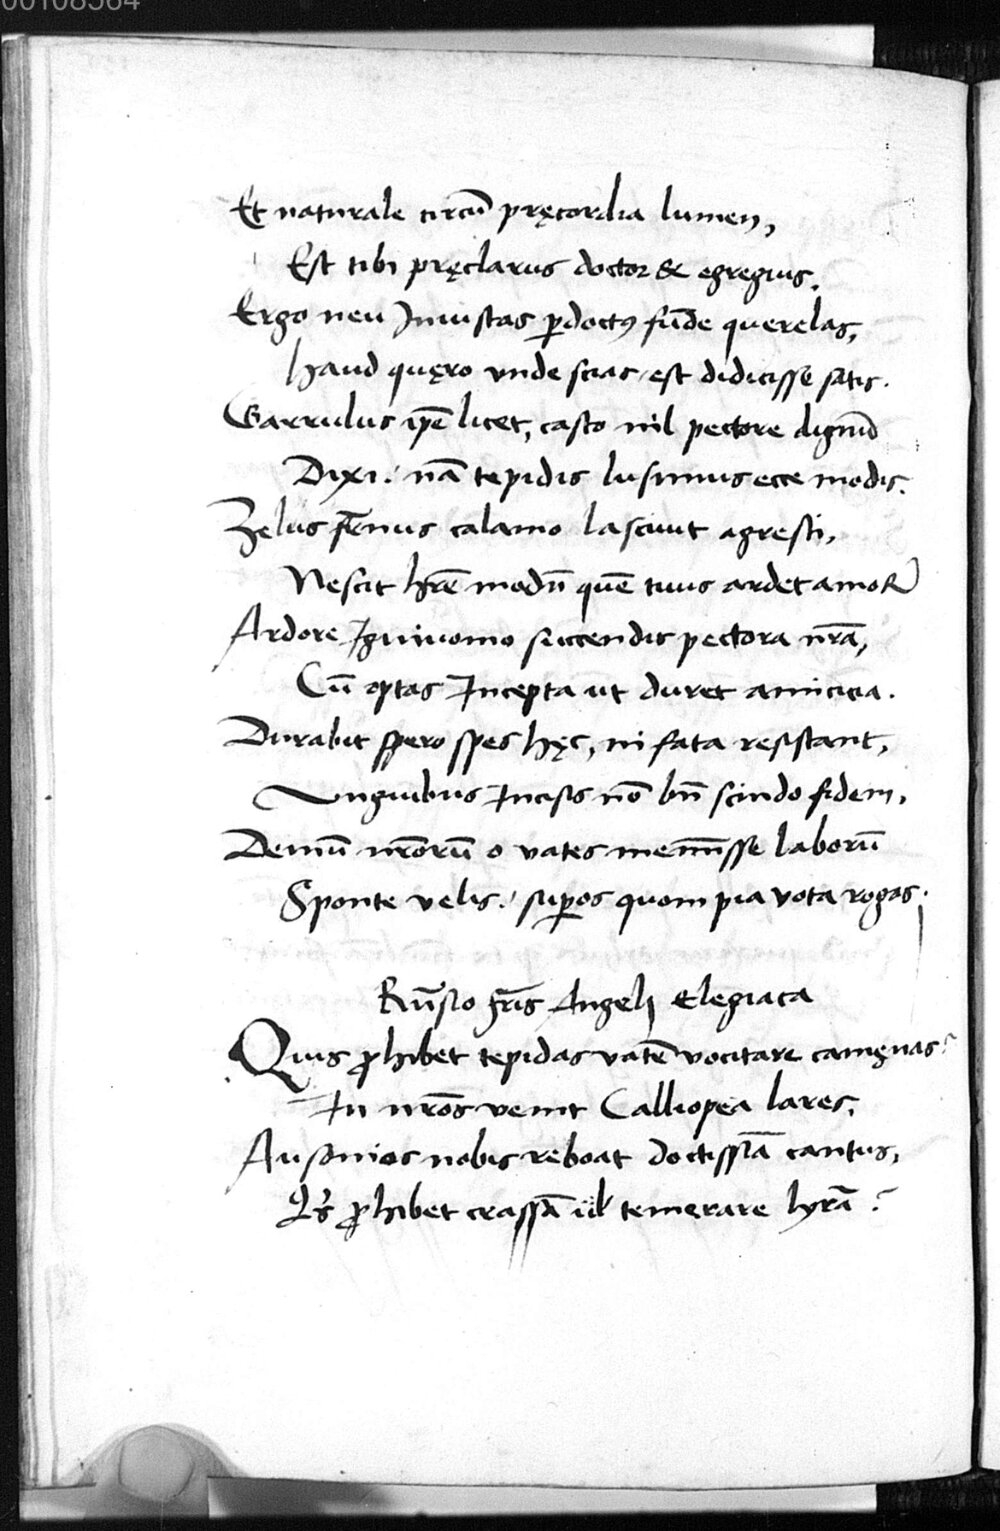 00108564
Et naturale circū pręcordia lumen,
Est tibi pręclarus doctor & egregius.
Ergo neu Iniustas ꝑdoctꝰ fūde querelas,
haud quęro vnde scias / est didicisse satis.
Garrulus ip̄e licet, casto nil pectore dignū
Dixi: nā tepidis lusimus ecce modis.
Zelus fr̄nus calamo lasciuit agresti,
Nescit hr̄e modū quē tuus ardet amor
Ardore Igniuomo succendis pectora nr̄a,
Cū optas Incepta ut duret amicicia.
Durabit spero spes hęc, ni fata resistant,
Vnguibus Incisis nō bn̄ scindo fidem,
Demū nr̄orū o vates meminisse laborū
Sponte velis: suꝑos quom pia vota rogas.
Rūsio fr̄is Angeli Elegiaca
Quis ꝓhibet tepidas vatē vocitare camęnas?
In nr̄os venit Calliopea lares,
Ausonios nobis reboat doctissīa cantus,
Qͥs ꝓhibet crassā temerare lyrā?